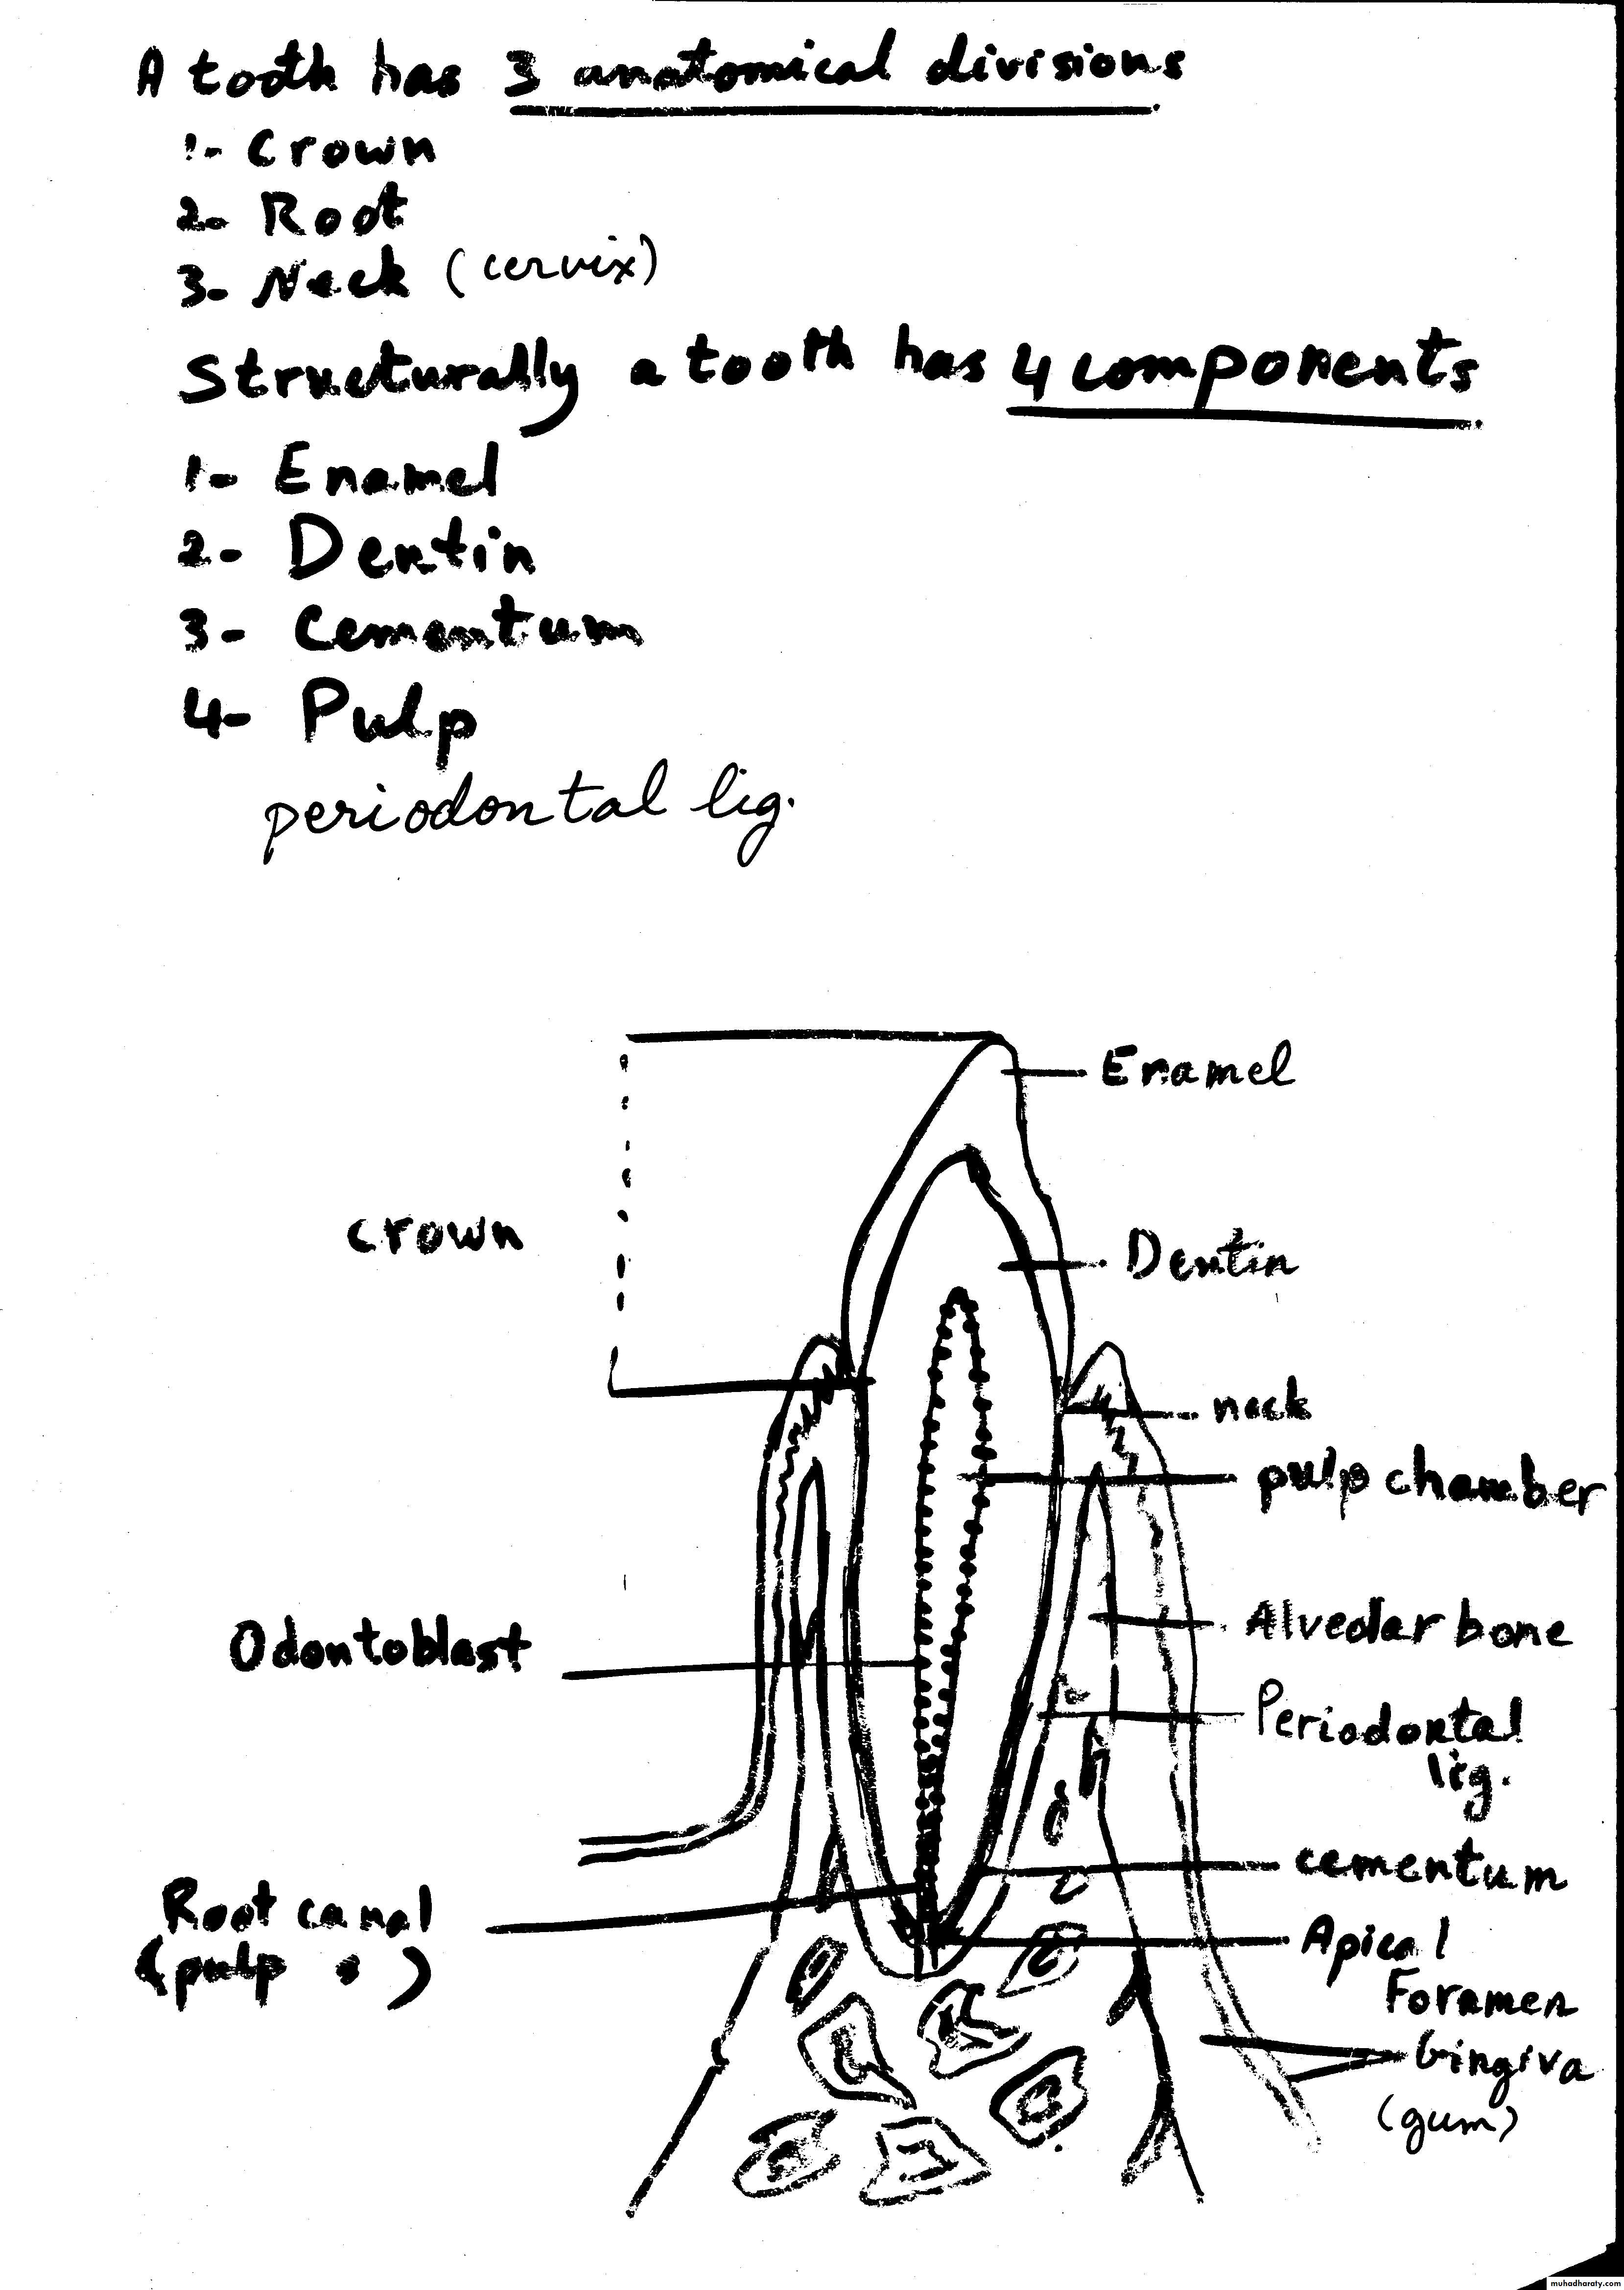 A tooth has 3 anatomical divisions
1- Crown
2- Root
3- Neck (cervix)
Structurally a tooth has 4 components
1- Enamel
2- Dentin
3- Cementum
4- Pulp
periodontal lig.
Enamel
crown
Dentin
neck
pulp chamber
Alveolar bone
Odontoblast
Periodontal
lig.
cementum
Root canal
(pulp )
Apical
Foramen
Gingiva
(gum)
muhadharaty.com